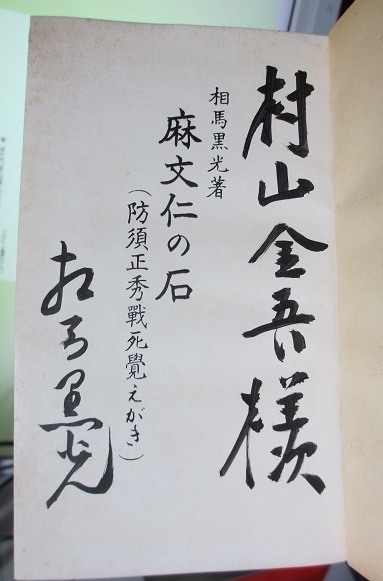 村山金吾様
相馬黒光著
麻文仁の石
(防須正秀戰死覺えがき)
相馬黒光